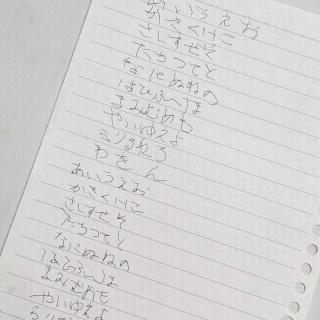 あいうえお
かきくけこ
さしすせそ
たちつてと
なにぬねの
はひふへほ
まみむめも
やいゆえよ
らりるれろ
わをん
あいうえお
かきくけこ
さしすせそ
たちつてと
なにぬねの
はひふへほ
まみむめも
やいゆえよ